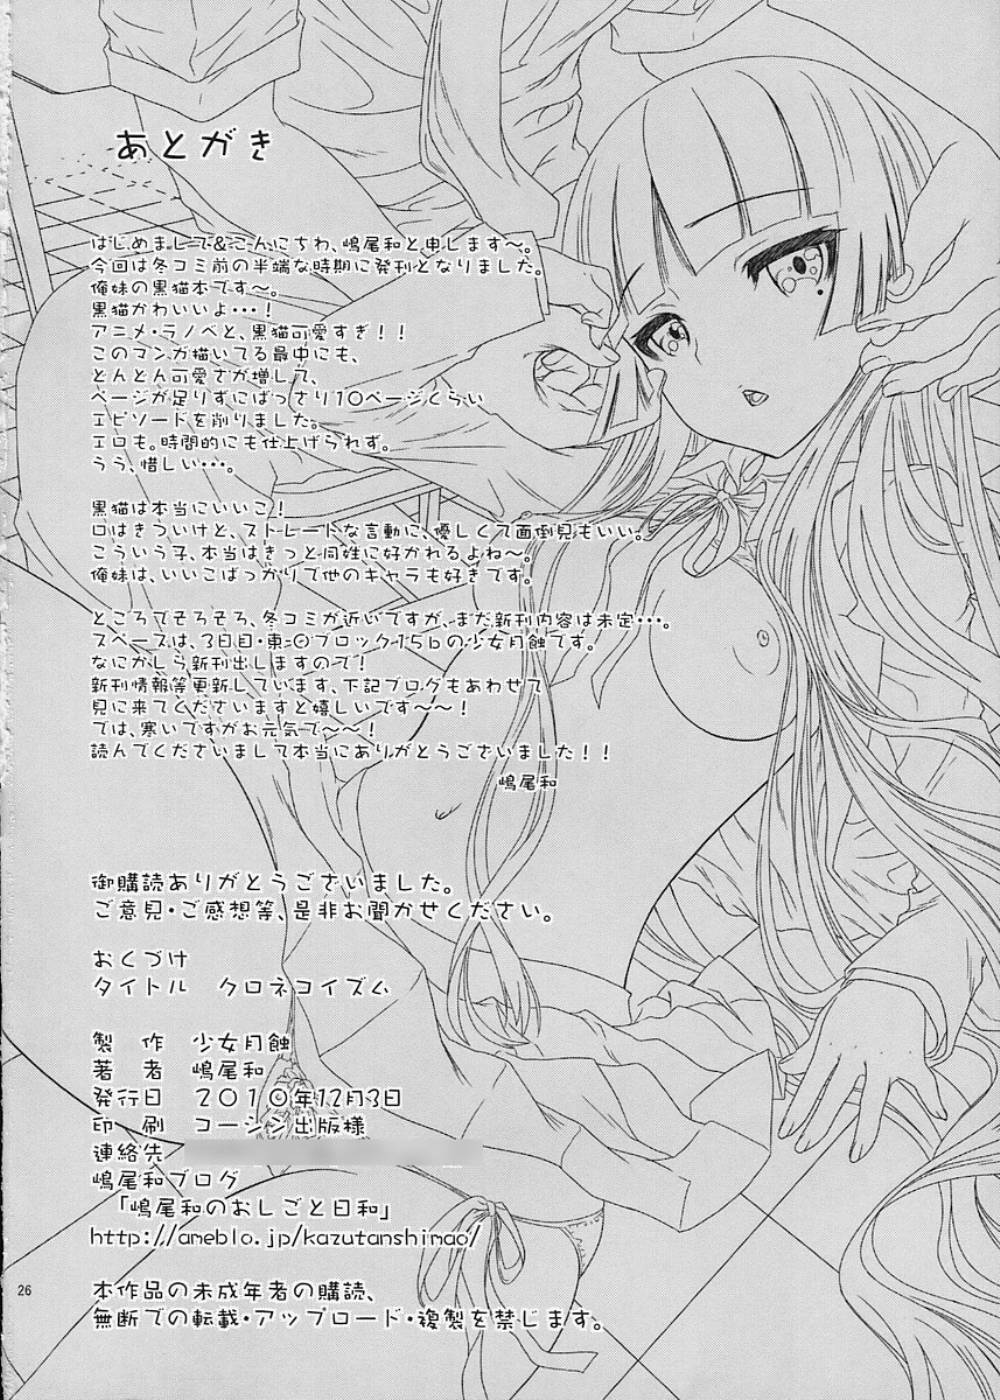 あとがき
はじめまして&こんにちわ、嶋尾和と申します～。
今回は冬コミ前の半端な時期に発刊となりました。
俺妹の黒猫本です～。
黒猫かわいいよ・・・！
アニメ・ラノベと、黒猫可愛すぎ！！
このマンガ描いてる最中にも、
どんどん可愛さが増して、
ページが足りずにばっさり10ページくらい
エピソードを削りました。
エロも。時間的にも仕上げられず。
うう、惜しい・・・。
黒猫は本当にいいこ！
口はきついけど、ストレートな言動に、優しくて面倒見もいい。
こういう子、本当はきっと同姓に好かれるよね～。
俺妹は、いいこばっかりで他のキャラも好きです。
ところでそろそろ、冬コミが近いですが、まだ新刊内容は未定・・・。
スペースは、3日目・東-Oブロック-15bの少女月蝕です。
なにかしら新刊出しますので！
新刊情報等更新しています、下記ブログもあわせて
見に来てくださいますと嬉しいです～～！
では、寒いですがお元気で～～！
読んでくださいまして本当にありがとうございました！！
嶋尾和
御購読ありがとうございました。
ご意見・ご感想等、是非お聞かせください。
おくづけ
タイトル　クロネコイズム
製　作　少女月蝕
著　者　嶋尾和
発行日　2010年12月3日
印　刷　コーシン出版様
連絡先
嶋尾和ブログ
「嶋尾和のおしごと日和」
http://ameblo.jp/kazutanshimao/
本作品の未成年者の購読、
無断での転載・アップロード・複製を禁じます。
26